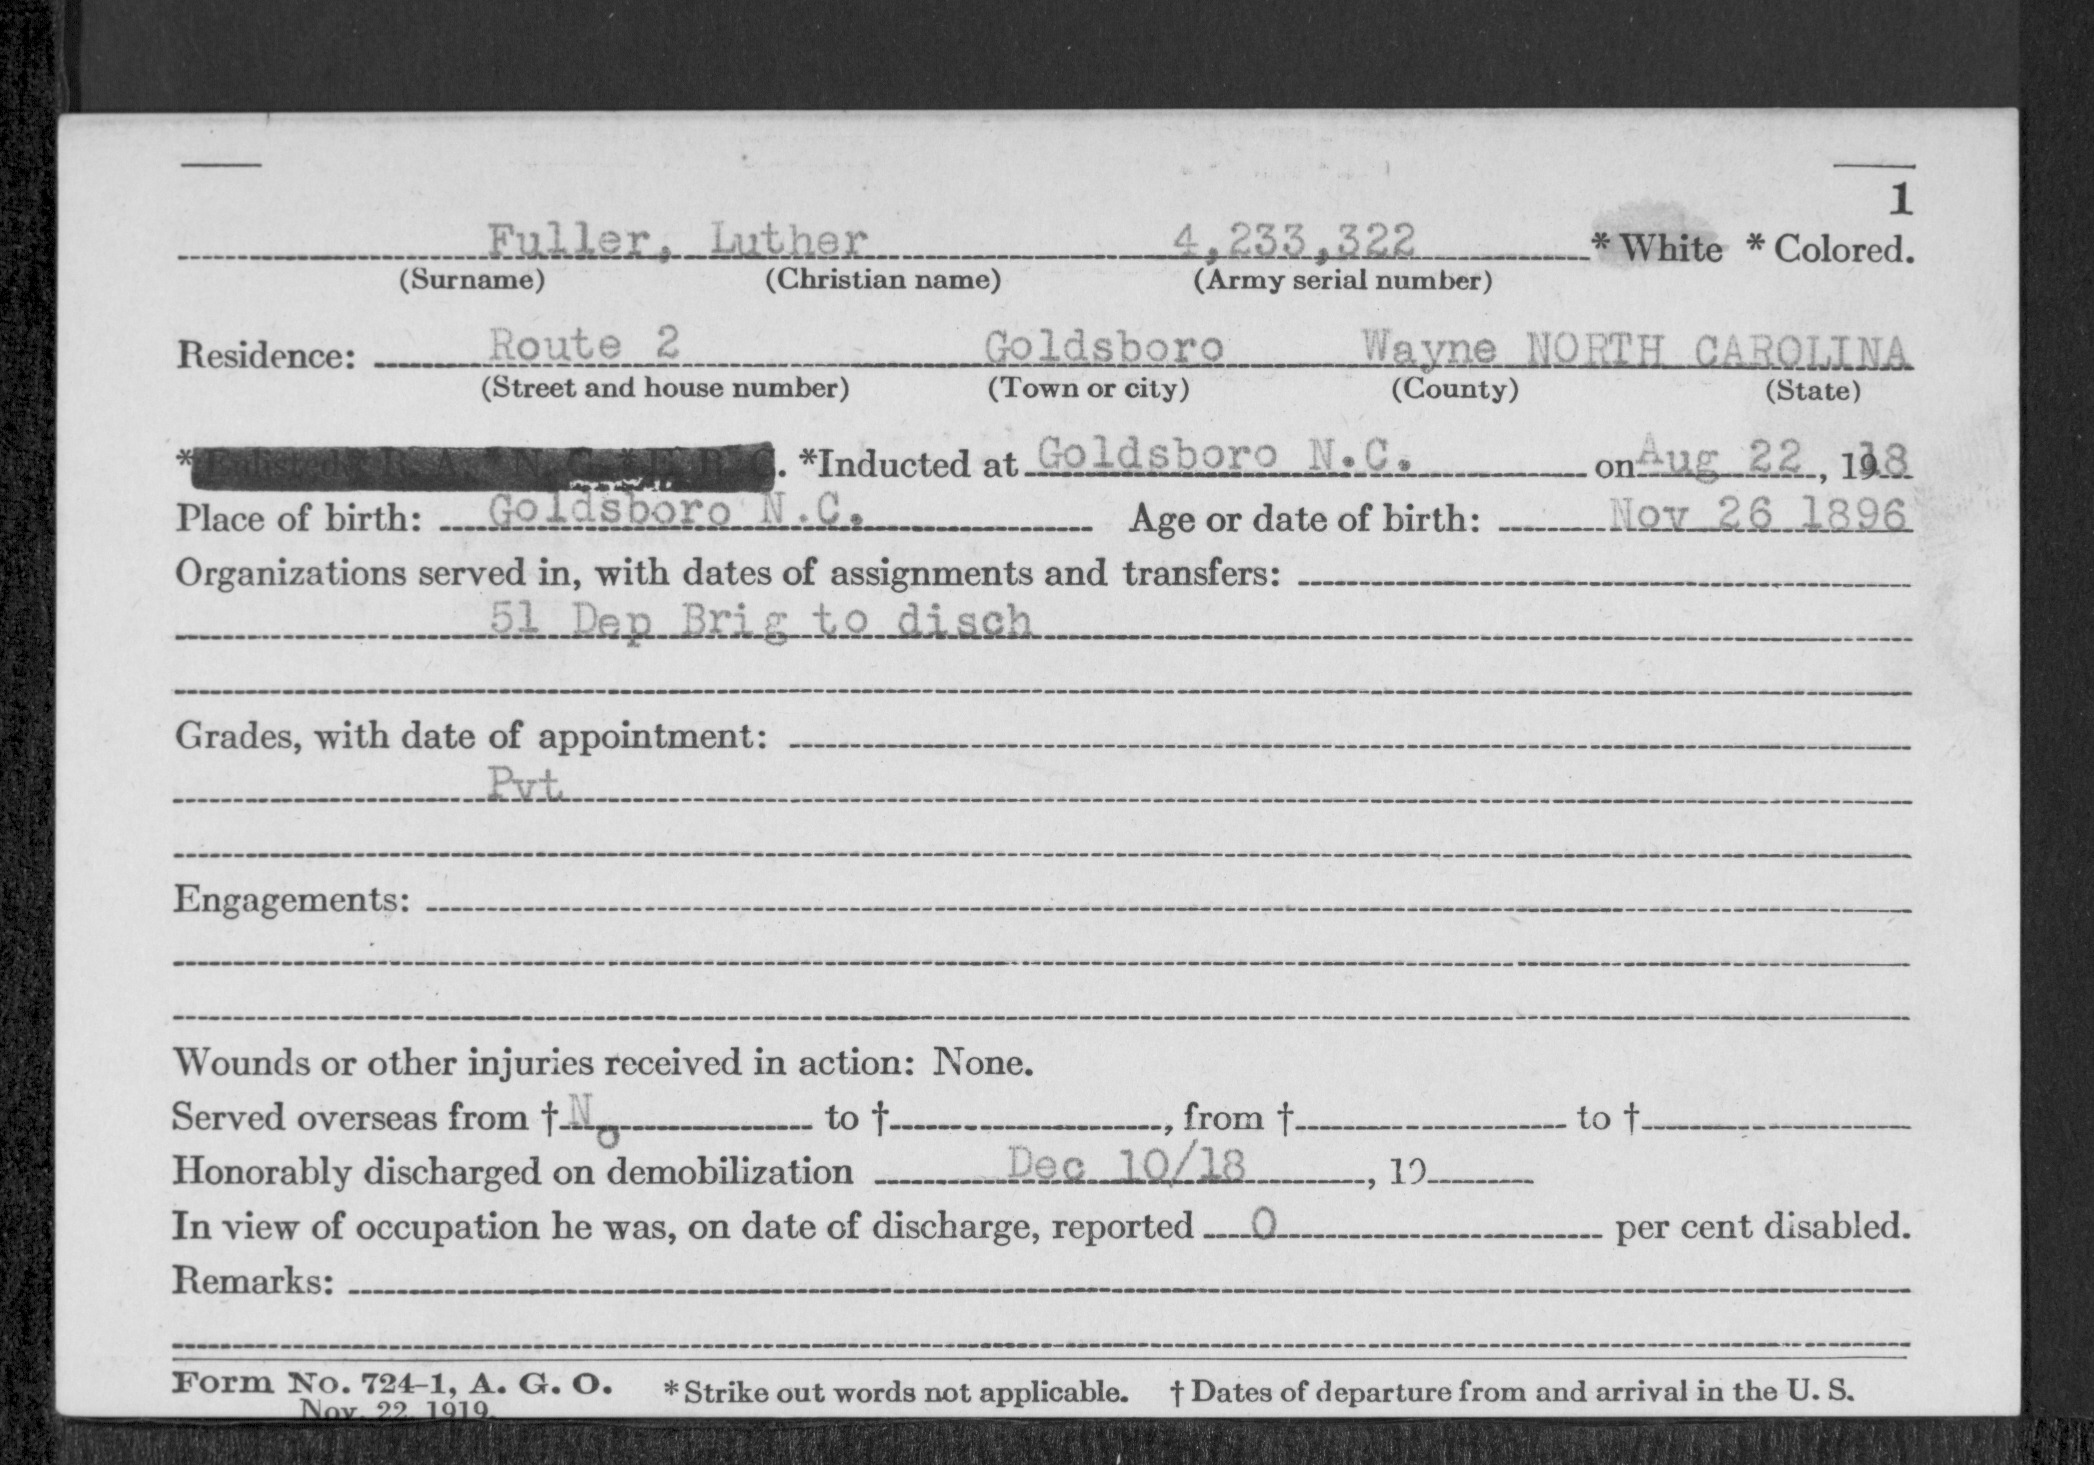 1
Fuller, Luther 4,233,322 * White * Colored.
(Surname) (Christian name) (Army serial number)
Residence: Route 2 Goldsboro Wayne NORTH CAROLINA
(Street and house number) (Town or city) (County) (State)
* Enlisted * R. A. * N. G. * E. R. C. *Inducted at Goldsboro N.C. on Aug 22, 1918
Place of birth: Goldsboro N.C. Age or date of birth: Nov 26 1896
Organizations served in, with dates of assignments and transfers:
51 Dep Brig to disch
Grades, with date of appointment:
Pvt
Engagements:
Wounds or other injuries received in action: None.
Served overseas from † No to †, from † to †
Honorably discharged on demobilization Dec 10/18, 19
In view of occupation he was, on date of discharge, reported 0 per cent disabled.
Remarks:
Form No. 724-1, A. G. O. * Strike out words not applicable. † Dates of departure from and arrival in the U. S.
Nov. 22, 1919.